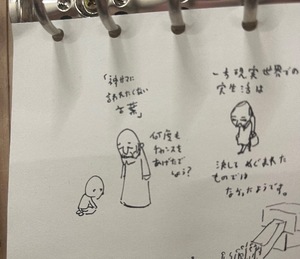 「神様に
言われたくない
言葉」
何度も
チャンスを
あげたで
しょう?
一方現実世界での
実生活は
決して めぐまれた
ものでは
なかったようです。